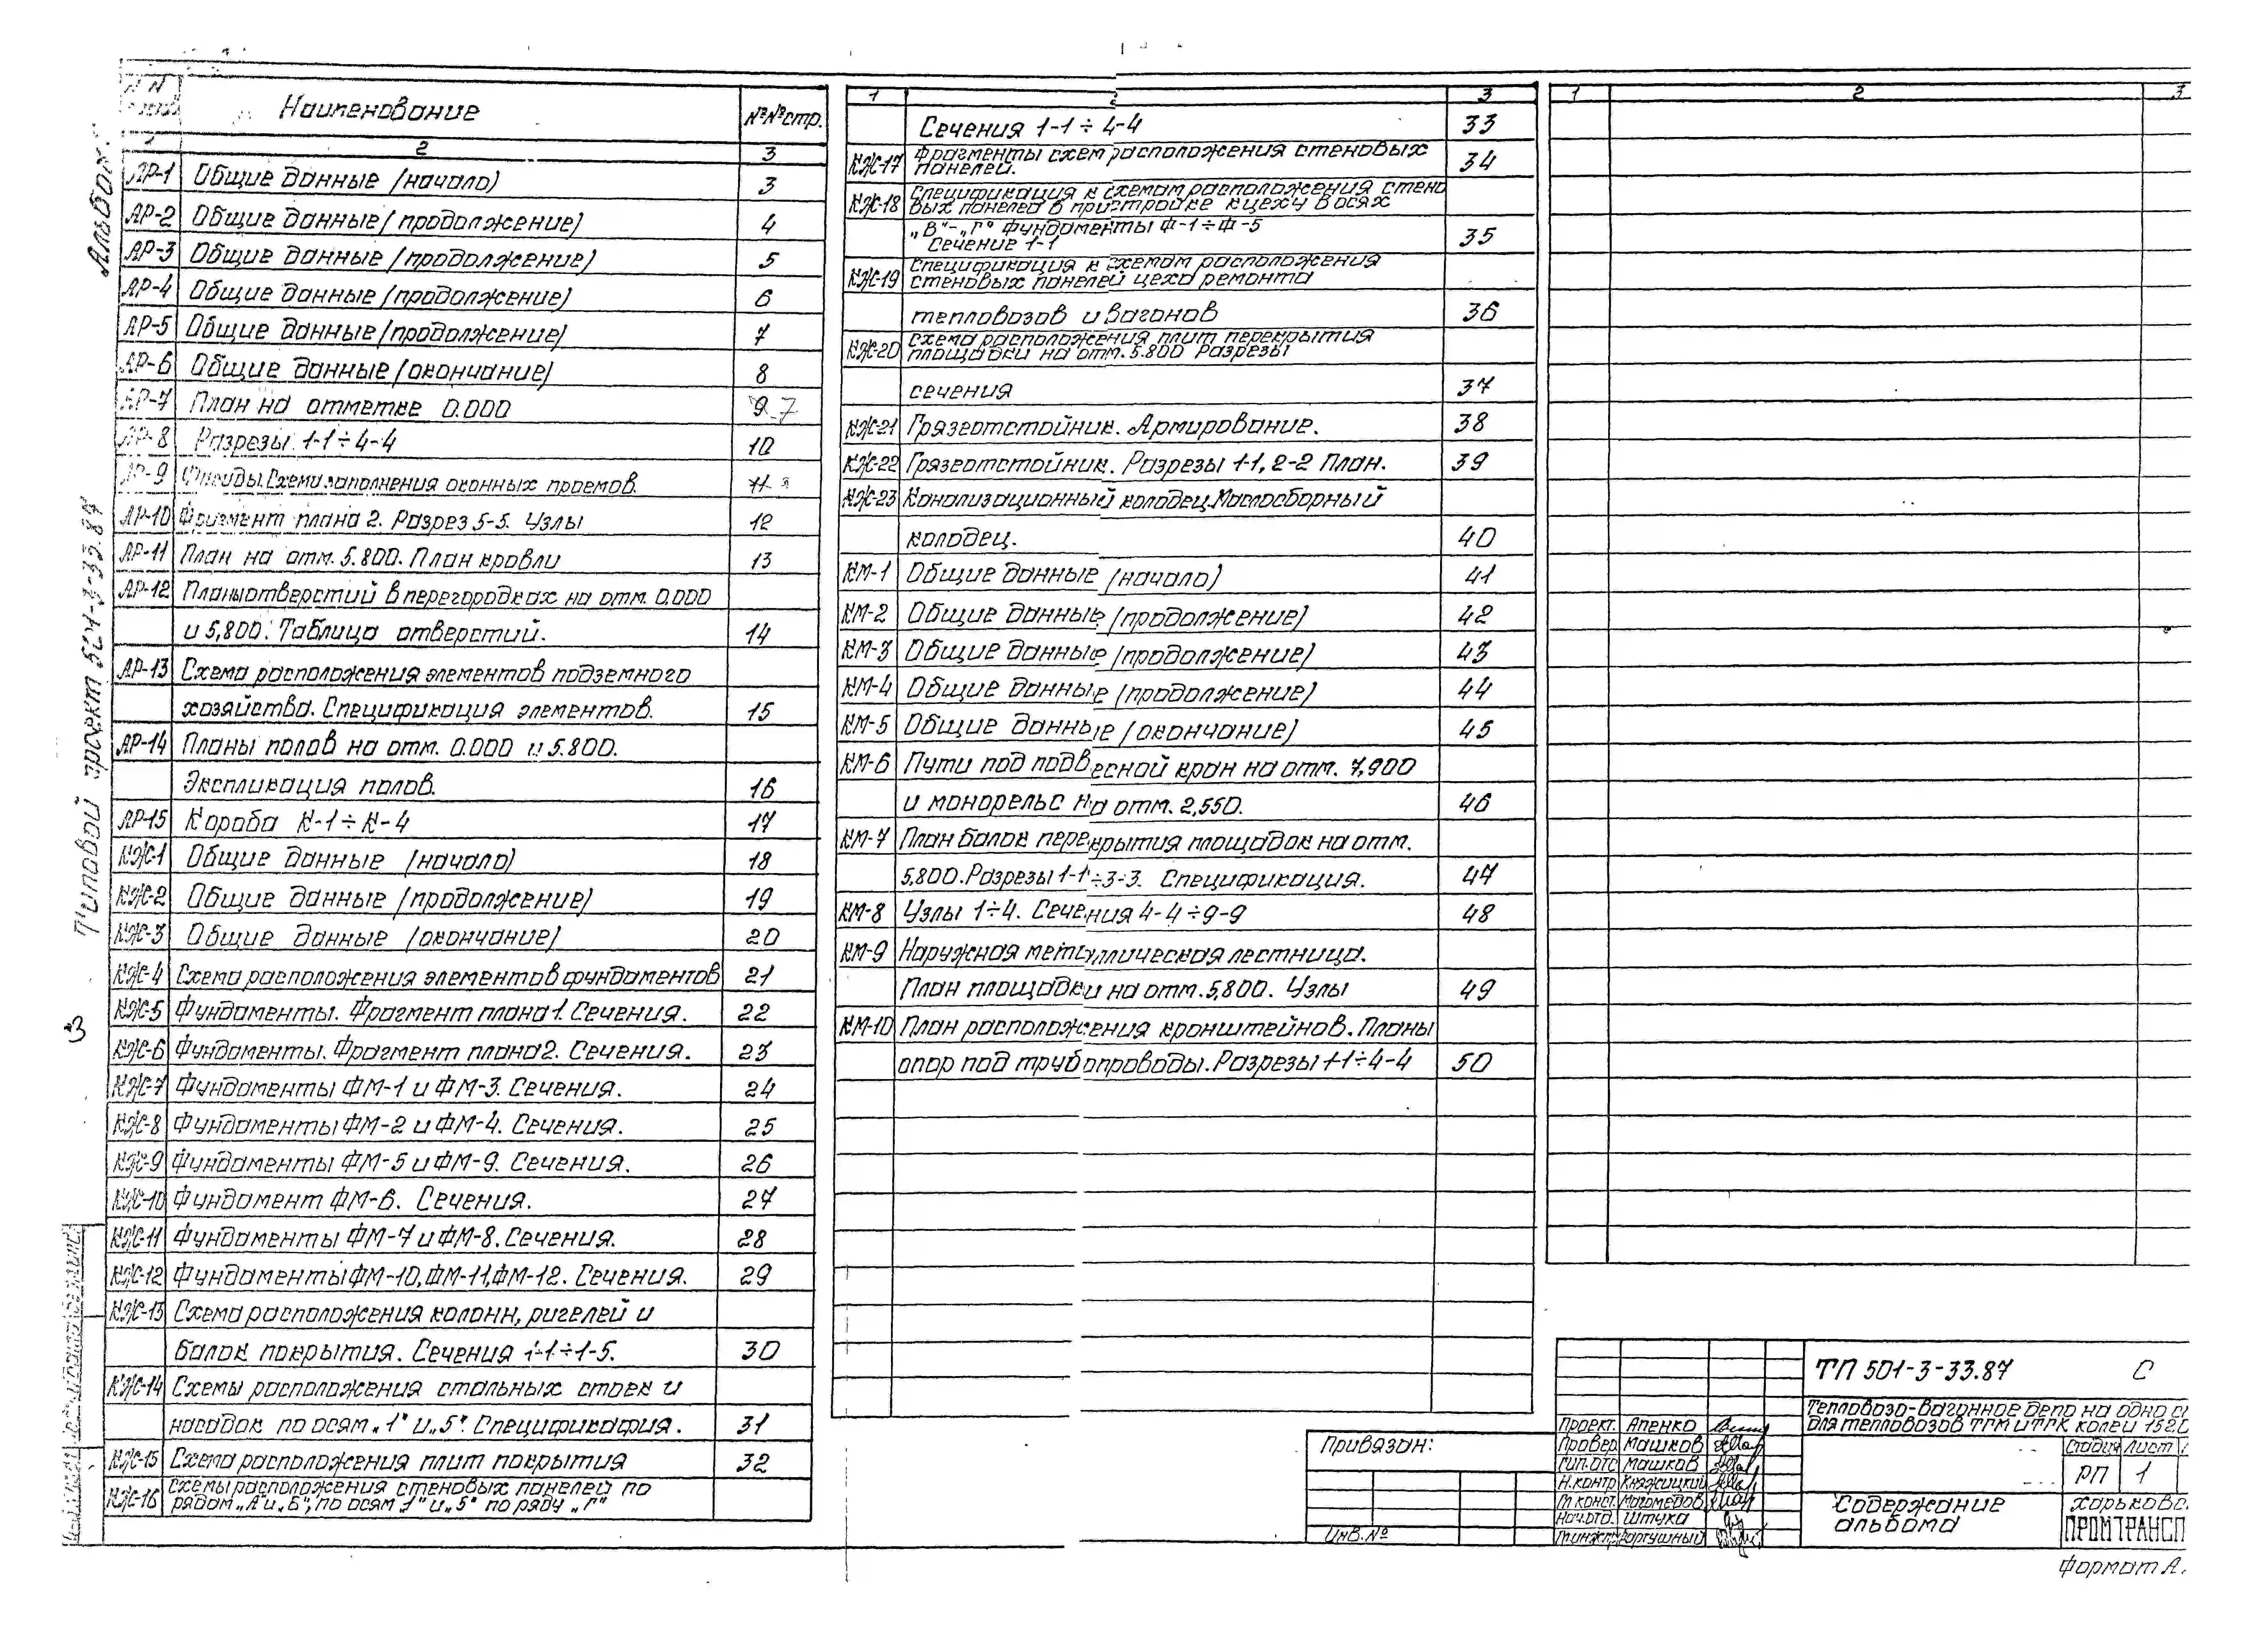 Альбом
Типовой проект 501-3-33.87
3
Наименование №№ стр.
2 3
АР-1 Общие данные (начало) 3
АР-2 Общие данные (продолжение) 4
АР-3 Общие данные (продолжение) 5
АР-4 Общие данные (продолжение) 6
АР-5 Общие данные (продолжение) 7
АР-6 Общие данные (окончание) 8
АР-7 План на отметке 0.000 9
АР-8 Разрезы 1-1÷4-4 10
АР-9 Фасады. Схема заполнения оконных проемов. 11
АР-10 Фрагмент плана 2. Разрез 5-5. Узлы 12
АР-11 План на отм. 5.800. План кровли 13
АР-12 Планы отверстий в перегородках на отм. 0.000
и 5,800. Таблица отверстий. 14
АР-13 Схема расположения элементов подземного
хозяйства. Спецификация элементов. 15
АР-14 Планы полов на отм. 0.000 и 5.800.
Экспликация полов. 16
АР-15 Короба К-1÷К-4 17
КЖ-1 Общие данные (начало) 18
КЖ-2 Общие данные (продолжение) 19
КЖ-3 Общие данные (окончание) 20
КЖ-4 Схема расположения элементов фундаментов 21
КЖ-5 Фундаменты. Фрагмент плана 1. Сечения. 22
КЖ-6 Фундаменты. Фрагмент плана 2. Сечения. 23
КЖ-7 Фундаменты ФМ-1 и ФМ-3. Сечения. 24
КЖ-8 Фундаменты ФМ-2 и ФМ-4. Сечения. 25
КЖ-9 Фундаменты ФМ-5 и ФМ-9. Сечения. 26
КЖ-10 Фундамент ФМ-6. Сечения. 27
КЖ-11 Фундаменты ФМ-7 и ФМ-8. Сечения. 28
КЖ-12 Фундаменты ФМ-10, ФМ-11, ФМ-12. Сечения. 29
КЖ-13 Схема расположения колонн, ригелей и
балок покрытия. Сечения 1-1÷1-5. 30
КЖ-14 Схемы расположения стальных стоек и
насадок по осям „1" и „5". Спецификация. 31
КЖ-15 Схема расположения плит покрытия 32
КЖ-16 Схемы расположения стеновых панелей по
рядам „А" и „Б", по осям „1" и „5" по ряду „Г"
1 2 3
Сечения 1-1 ÷ 4-4 33
КЖ-17 Фрагменты схем расположения стеновых
панелей. 34
КЖ-18 Спецификация к схемам расположения стено
вых панелей в пристройке к цеху в осях
„В"-„Г" Фундаменты Ф-1÷Ф-5
Сечение 1-1 35
КЖ-19 Спецификация к схемам расположения
стеновых панелей цеха ремонта
тепловозов и вагонов 36
КЖ-20 Схема расположения плит перекрытия
площадки на отм. 5.800 Разрезы
сечения 37
КЖ-21 Грязеотстойник. Армирование. 38
КЖ-22 Грязеотстойник. Разрезы 1-1, 2-2 План. 39
КЖ-23 Канализационный колодец. Маслосборный
колодец. 40
КМ-1 Общие данные (начало) 41
КМ-2 Общие данные (продолжение) 42
КМ-3 Общие данные (продолжение) 43
КМ-4 Общие данные (продолжение) 44
КМ-5 Общие данные (окончание) 45
КМ-6 Пути под подвесной кран на отм. 7,900
и монорельс на отм. 2,550. 46
КМ-7 План балок перекрытия площадок на отм.
5,800. Разрезы 1-1÷3-3. Спецификация. 47
КМ-8 Узлы 1÷4. Сечения 4-4÷9-9 48
КМ-9 Наружная металлическая лестница.
План площадки на отм. 5,800. Узлы 49
КМ-10 План расположения кронштейнов. Планы
опор под трубопроводы. Разрезы 1-1÷4-4 50
1 2 3
Привязан:
Инв.№
ТП 501-3-33.87 С
Тепловозо-вагонное депо на одно
для тепловозов ТГМ и ТГК колеи 152
Проект. Апенко
Провер. Машков
Гип.ОТС Машков
Н.контр Княжицкий
Гл.конст. Магомедов
Нач.отд. Штука
Стадия Лист
РП 1
Содержание
альбома
Харьковс
ПРОМТРАНСП
Формат А